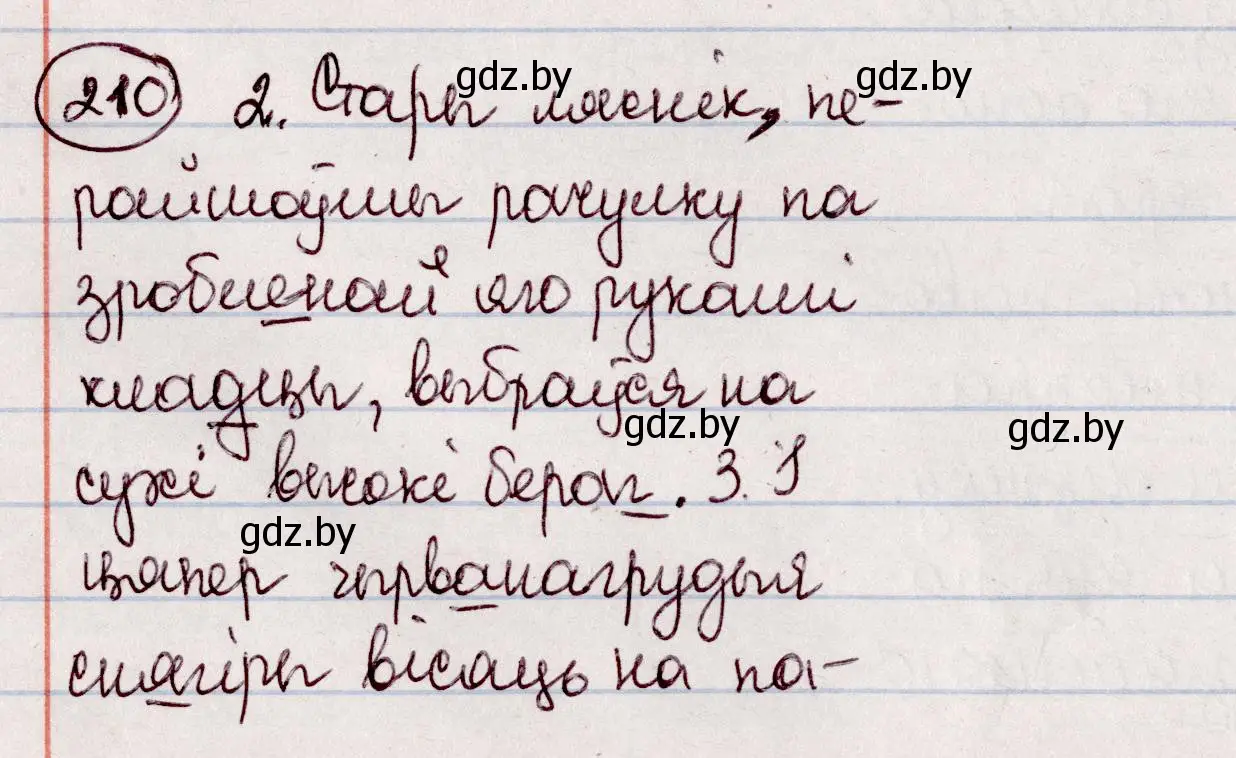 210 2. Стары ляснік, пе-
gdz.by gdz.by
райшоўшы рачулку па
зробленай яго рукамі
кладцы, выбраўся на
gdz.by gdz.by
сухі высокі бераг. 3. І
gdz.by
цяпер чырванагрудыя
снягіры вісяць на па-